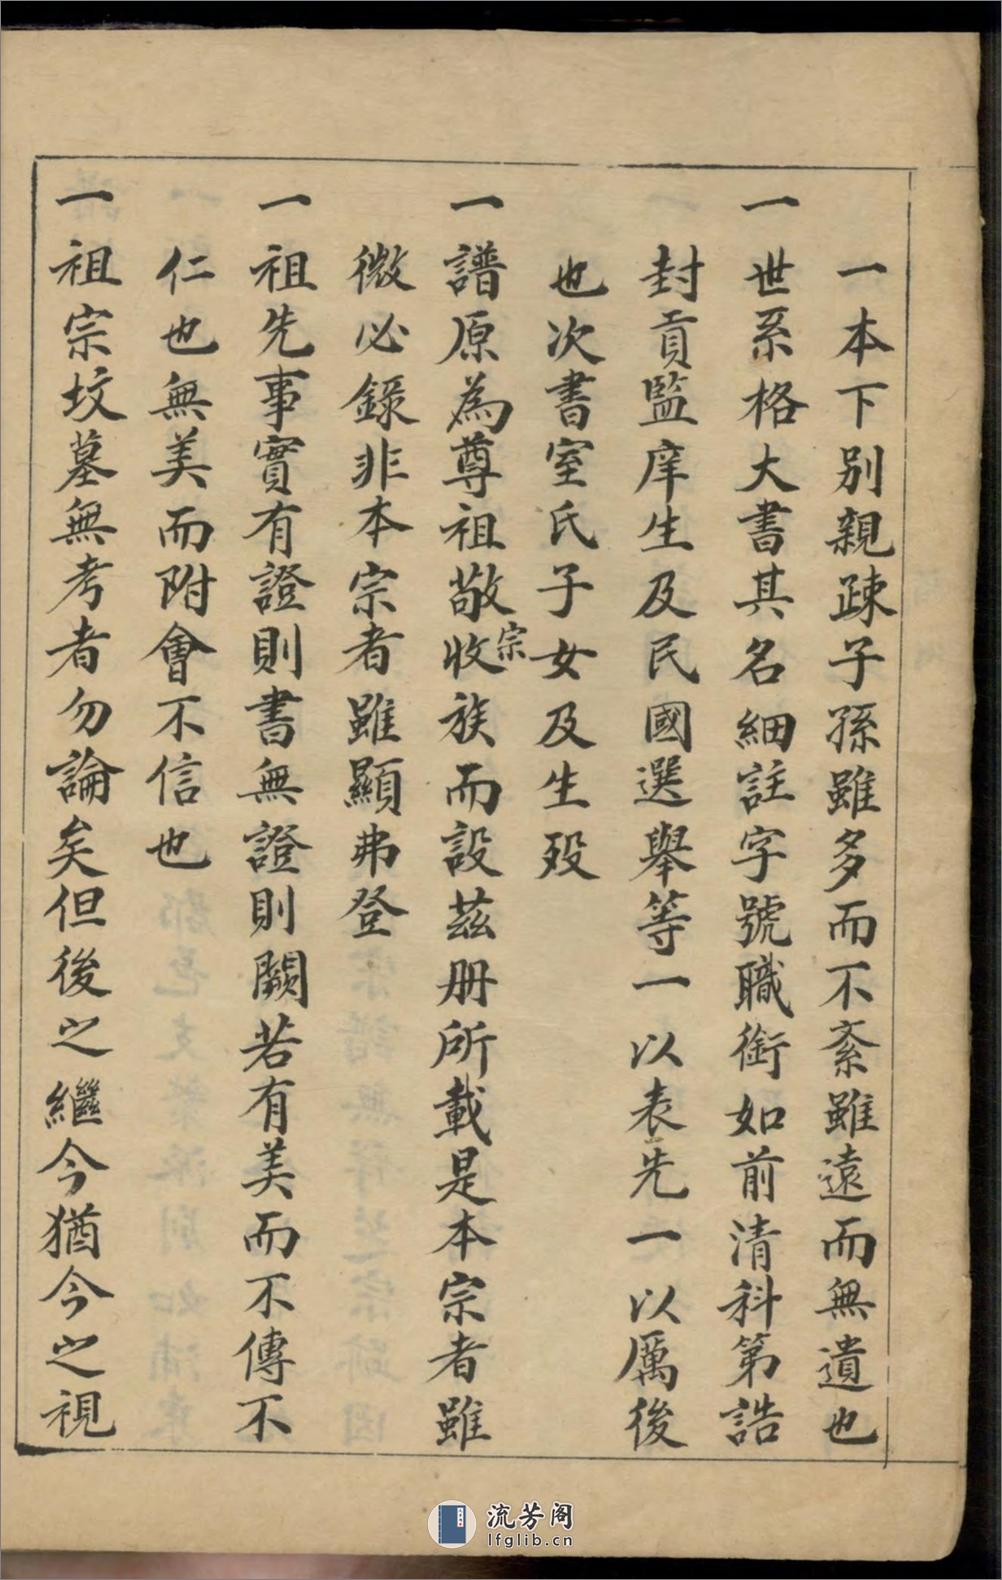 一本下别親疎子孫雖多而不紊雖遠而無遺也
一世系格大書其名細註字號職銜如前清科第誥
封貢監庠生及民國選舉等一以表先一以厲後
也次書室氏子女及生殁
一譜原為尊祖敬宗收族而設茲册所載是本宗者雖
微必錄非本宗者雖顯弗登
一祖先事實有證則書無證則闕若有美而不傳不
仁也無美而附會不信也
一祖宗坟墓無考者勿論矣但後之繼今猶今之視
流芳阁
lfglib.cn